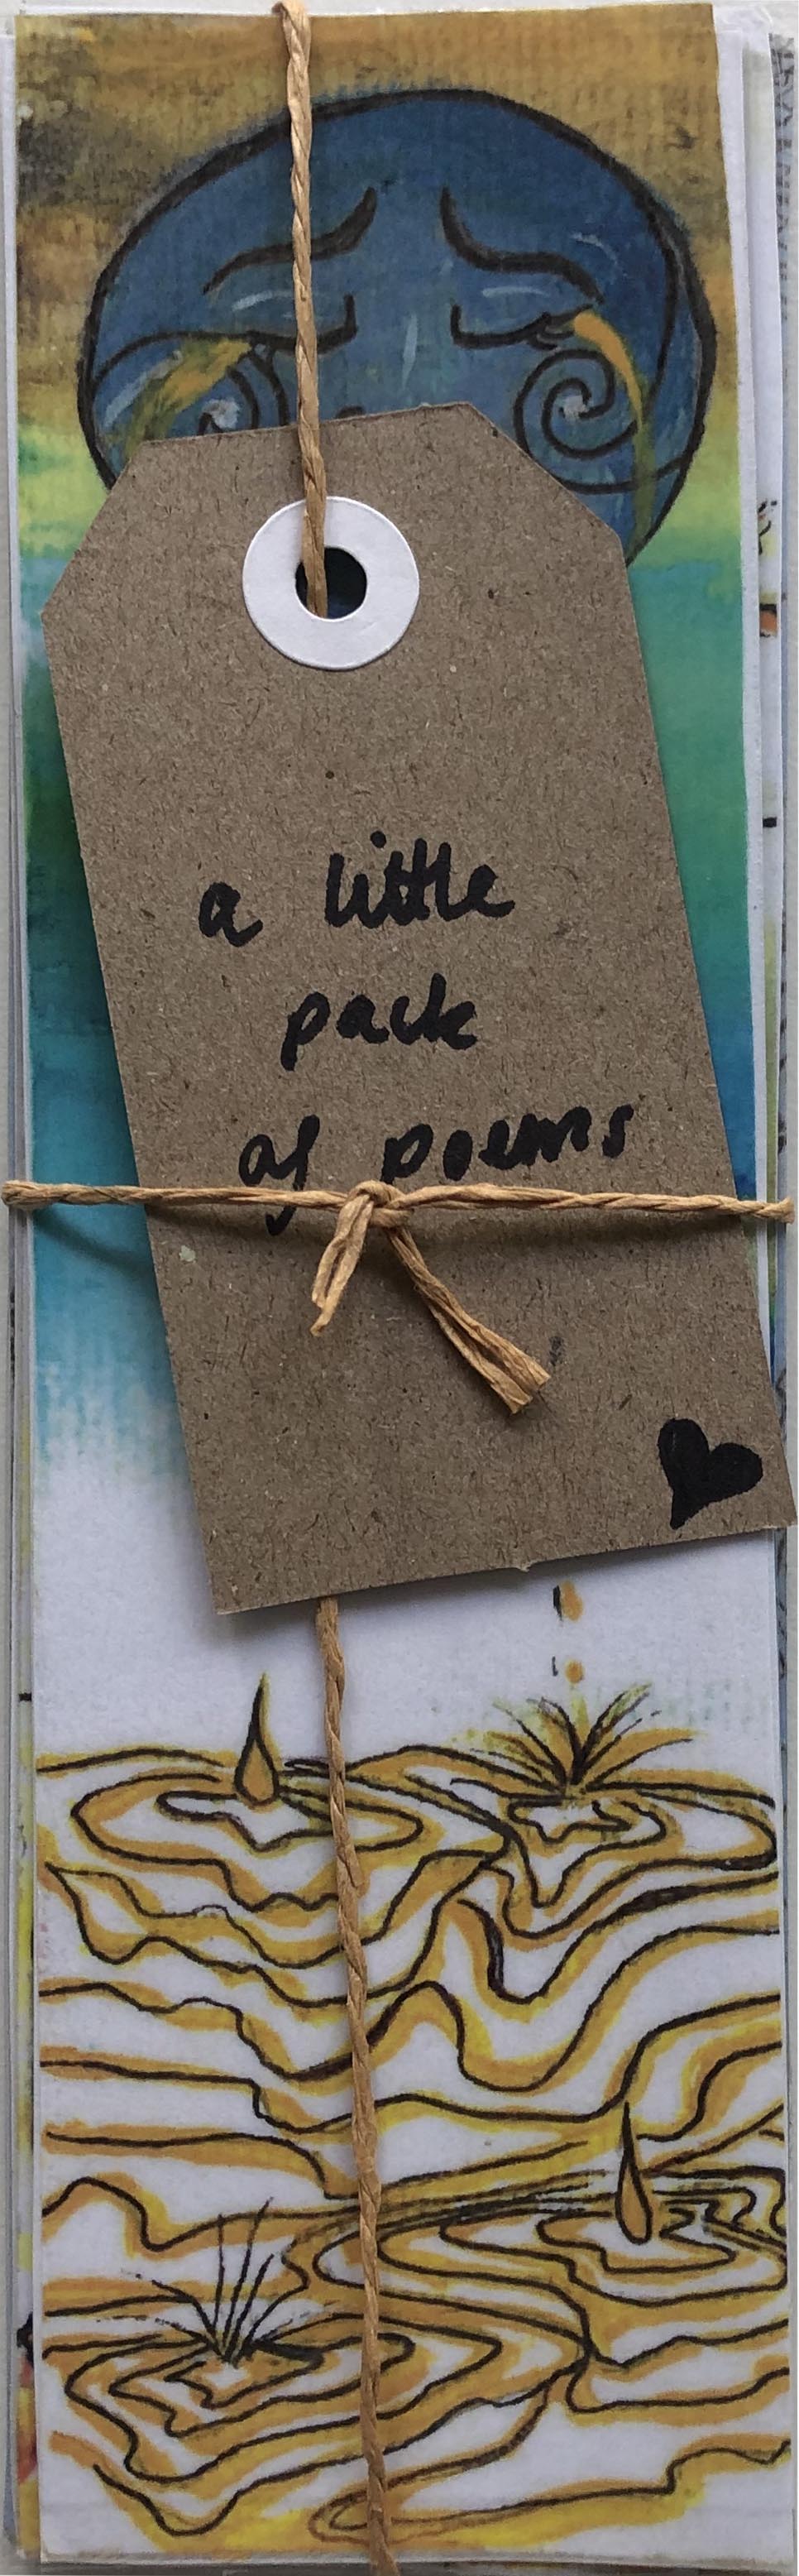 a little
pack
of poems